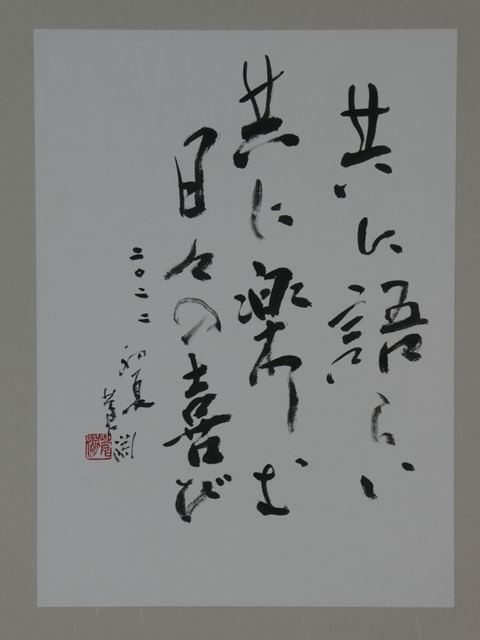 共に語らい
共に楽しむ
日々の喜び
二〇二二 初夏